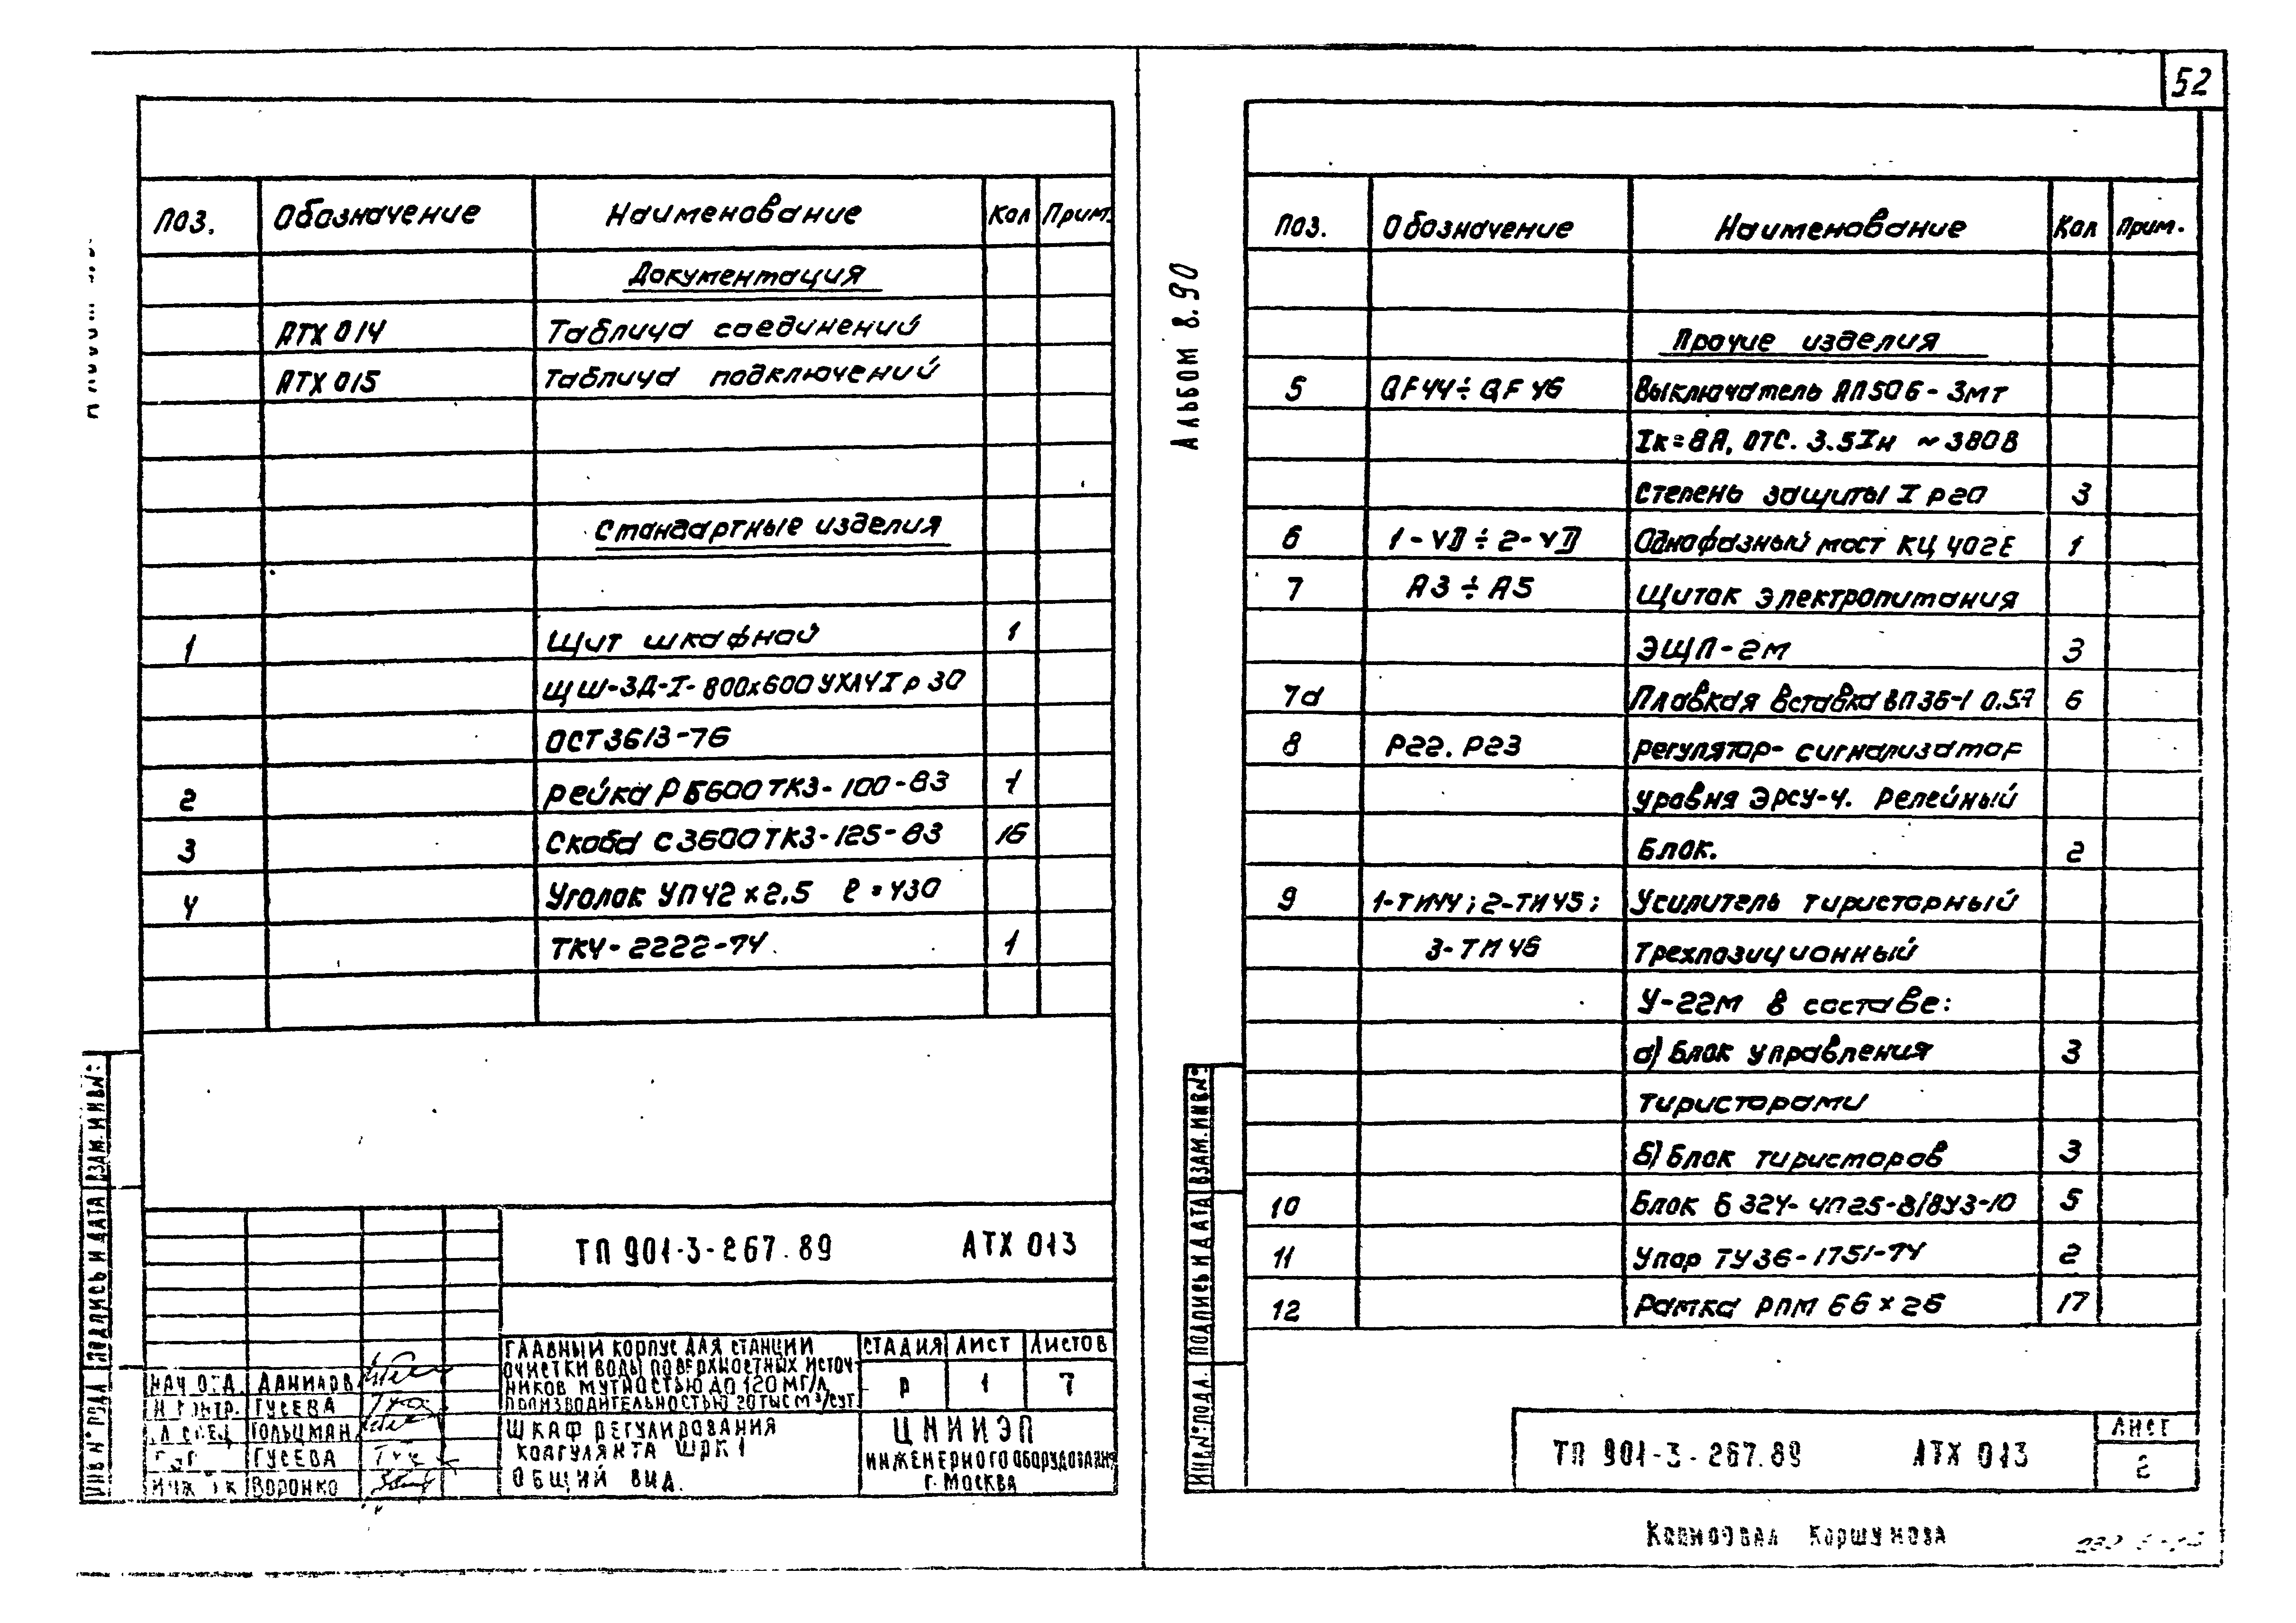 52
Поз. Обозначение Наименование Кол Прим.
Документация
АТХ 014 Таблица соединений
АТХ 015 Таблица подключений
Стандартные изделия
1 Щит шкафной 1
ЩШ-ЗД-I-800х600 УХЛЧ Iр 30
ОСТ 3613-76
2 Рейка РБ600 ТКЗ-100-83 1
3 Скоба С3600 ТКЗ-125-83 16
4 Уголок УП42×2.5 ℓ=430
ТК4-2222-74 1
ТП 901-3-267.89 АТХ 013
ГЛАВНЫЙ КОРПУС ДЛЯ СТАНЦИИ
ОЧИСТКИ ВОДЫ ПОВЕРХНОСТНЫХ ИСТОЧ-
НИКОВ МУТНОСТЬЮ ДО 120 МГ/Л
ПРОИЗВОДИТЕЛЬНОСТЬЮ 20 ТЫС М³/СУТ
СТАДИЯ ЛИСТ ЛИСТОВ
Р 1 7
НАЧ ОТД. ДАНИЛОВ
Н КОНТР. ГУСЕВА
ГОЛЬЦМАН
ГУСЕВА
ВОРОНКО
ШКАФ РЕГУЛИРОВАНИЯ
КОАГУЛЯНТА ШРК 1
ОБЩИЙ ВИД.
ЦНИИЭП
ИНЖЕНЕРНОГО ОБОРУДОВАНИЯ
Г. МОСКВА
ИНВ № ПОДЛ ПОДПИСЬ И ДАТА ВЗАМ. ИНВ №
АЛЬБОМ 8.90
Поз. Обозначение Наименование Кол Прим.
Прочие изделия
5 QF44÷QF46 Выключатель АП50Б-3МТ
Iк=8А, ОТС. 3.5Iн ~380В
Степень защиты I р20 3
6 1-VD÷2-VD Однофазный мост КЦ 402Е 1
7 А3÷А5 Щиток электропитания
ЭЩП-2М 3
7а Плавкая вставка ВП3Б-1 0.5А 6
8 Р22. Р23 Регулятор-сигнализатор
уровня ЭРСУ-4. Релейный
блок. 2
9 1-ТИ44; 2-ТИ45; Усилитель тиристорный
3-ТИ46 трехпозиционный
У-22М в составе:
а) Блок управления 3
тиристорами
б) Блок тиристоров 3
10 Блок Б324-4П25-В/ВУ3-10 5
11 Упор ТУ36-1751-74 2
12 Рамка РПМ 66×26 17
ИНВ № ПОДЛ. ПОДПИСЬ И ДАТА ВЗАМ. ИНВ №
ТП 901-3-267.89 АТХ 013
ЛИСТ
2
Копировал Коршунова